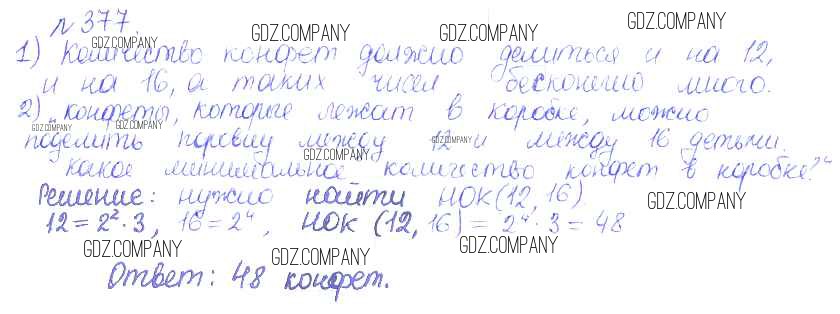 № 377
1) Количество конфет должно делиться и на 12,
и на 16, а таких чисел бесконечно много.
2) конфеты, которые лежат в коробке, можно
поделить поровну между 12 и между 16 детьми.
Какое минимальное количество конфет в коробке?"
Решение: нужно найти НОК(12, 16)
12 = 2² · 3, 16 = 2⁴, НОК (12, 16) = 2⁴ · 3 = 48
Ответ: 48 конфет.
GDZ.COMPANY
GDZ.COMPANY
GDZ.COMPANY
GDZ.COMPANY
GDZ.COMPANY
GDZ.COMPANY
GDZ.COMPANY
GDZ.COMPANY
GDZ.COMPANY
GDZ.COMPANY
GDZ.COMPANY
GDZ.COMPANY